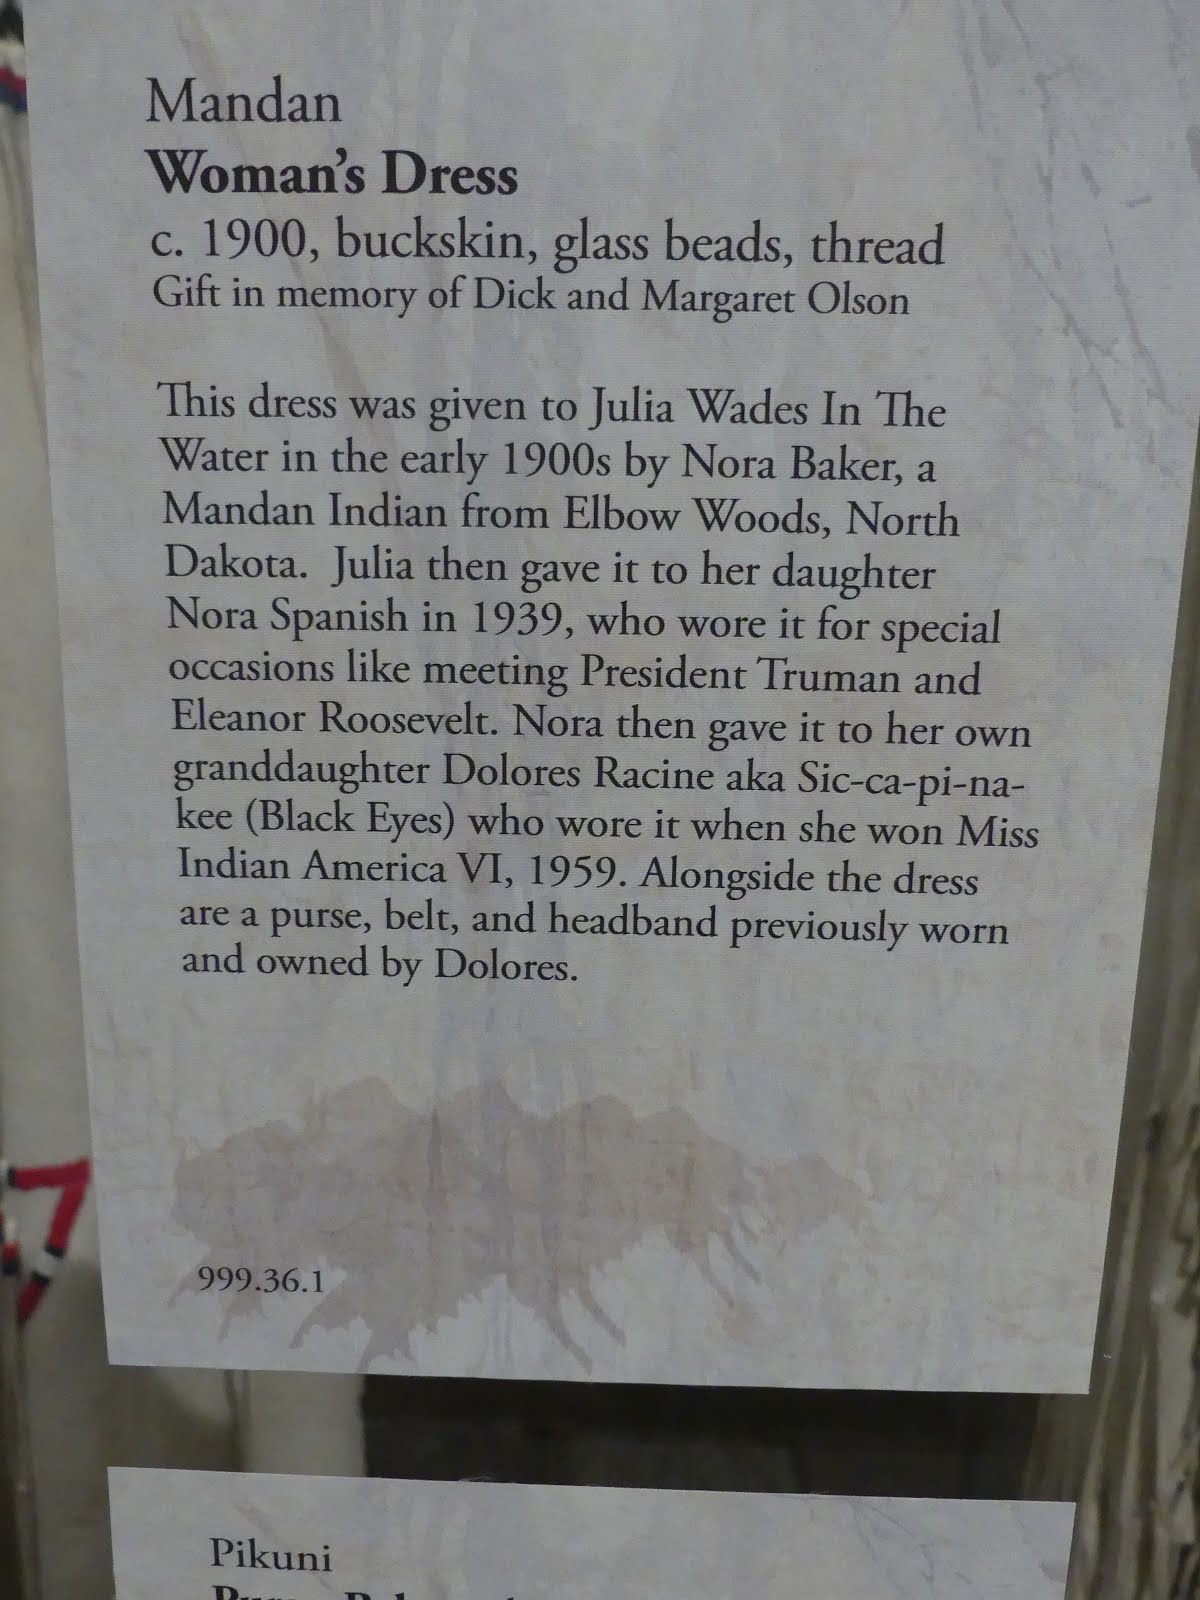 Mandan
Woman's Dress
c. 1900, buckskin, glass beads, thread
Gift in memory of Dick and Margaret Olson
This dress was given to Julia Wades In The
Water in the early 1900s by Nora Baker, a
Mandan Indian from Elbow Woods, North
Dakota.  Julia then gave it to her daughter
Nora Spanish in 1939, who wore it for special
occasions like meeting President Truman and
Eleanor Roosevelt. Nora then gave it to her own
granddaughter Dolores Racine aka Sic-ca-pi-na-
kee (Black Eyes) who wore it when she won Miss
Indian America VI, 1959. Alongside the dress
are a purse, belt, and headband previously worn
and owned by Dolores.
999.36.1
Pikuni